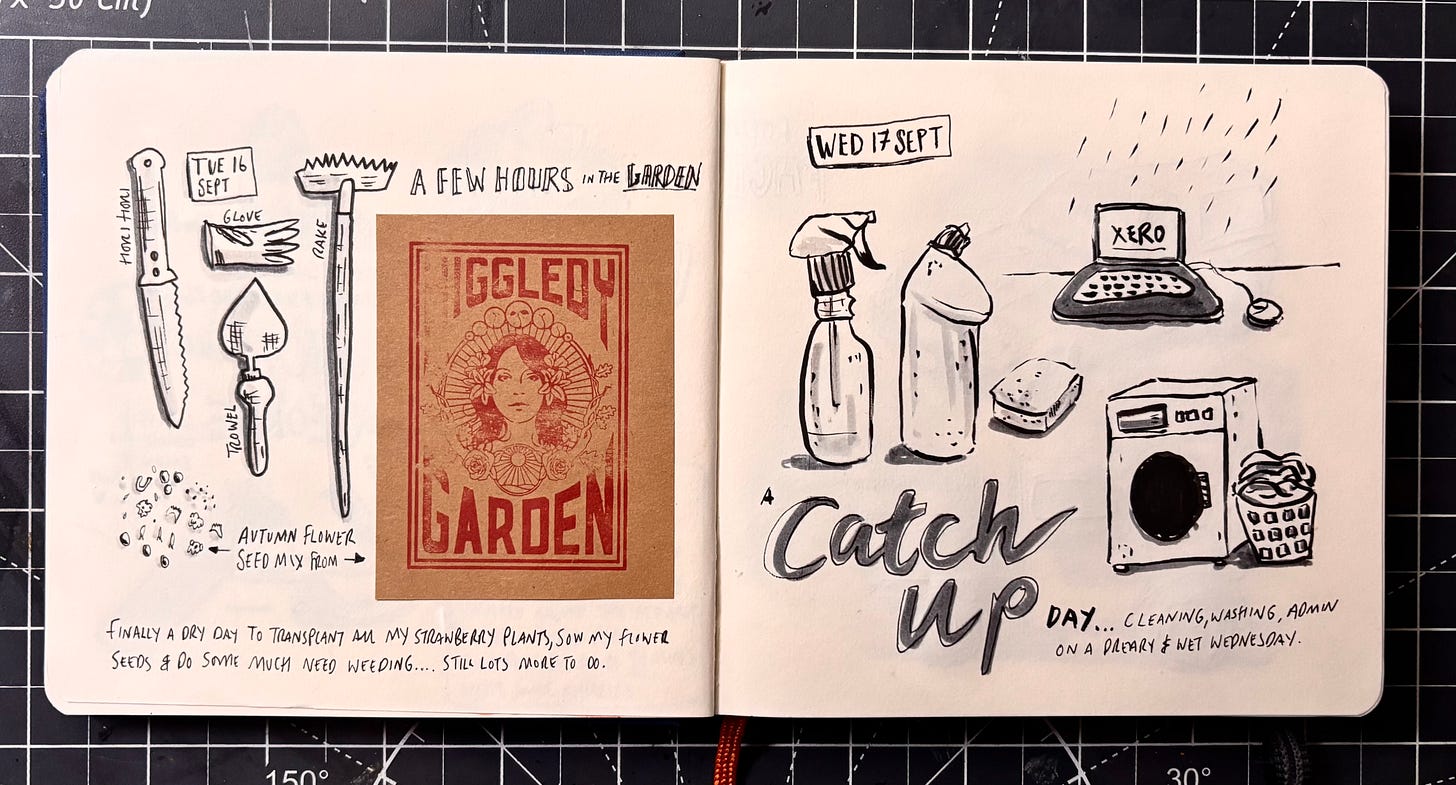 x 30 cm)
TUE 16
SEPT
HORI HORI
GLOVE
RAKE
TROWEL
A FEW HOURS IN THE GARDEN
HIGGLEDY
GARDEN
AUTUMN FLOWER
SEED MIX FROM
FINALLY A DRY DAY TO TRANSPLANT ALL MY STRAWBERRY PLANTS, SOW MY FLOWER
SEEDS & DO SOME MUCH NEED WEEDING.... STILL LOTS MORE TO DO.
WED 17 SEPT
XERO
A
Catch
up
DAY... CLEANING, WASHING, ADMIN
ON A DREARY & WET WEDNESDAY.
150°
30°